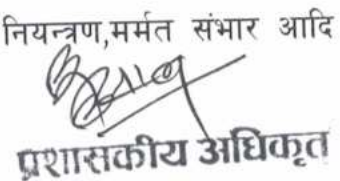 नियन्त्रण,मर्मत संभार आदि
प्रशासकीय अधिकृत